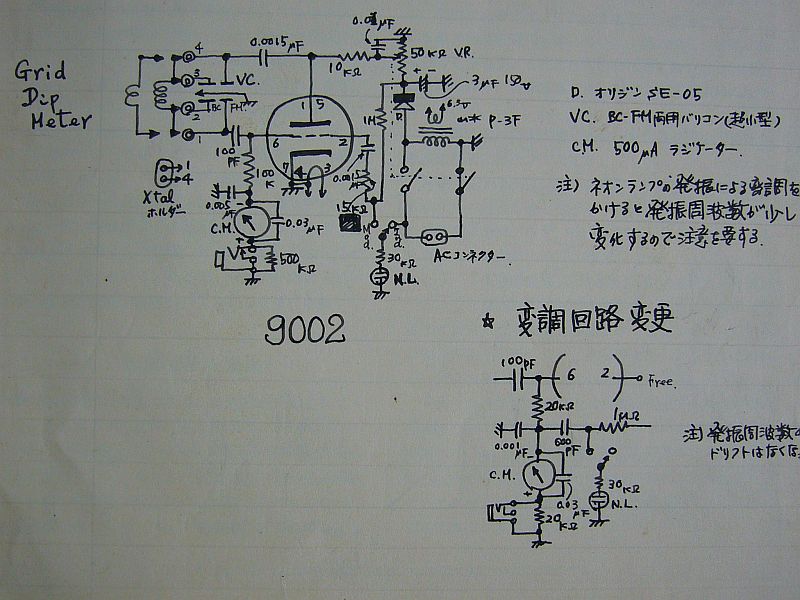 Grid
Dip
Meter
4
3
2
1
VC.
BC
FM
0.0015μF
10KΩ
50KΩ V.R.
3μF 150V
6.3V
P-3F
D
1M
100
PF
6
1
5
2
7
3
100
K
0.0015μF
15KΩ
0.005
μF
C.M.
0.03
μF
500
KΩ
30KΩ
N.L.
ACコネクター.
Xtal
ホルダー
1
4
9002
D. オリジン SE-05
VC. BC-FM両用バリコン(超小型)
C.M. 500μA ラジケーター.
注) ネオンランプの発振による変調を
かけると発振周波数が少し
変化するので注意を要する.
☆ 変調回路変更
100PF
6
2
Free.
20KΩ
1MΩ
0.001
μF
600
PF
C.M.
0.03
μF
30KΩ
N.L.
20
KΩ
注) 発振周波数の
ドリフトはなくな